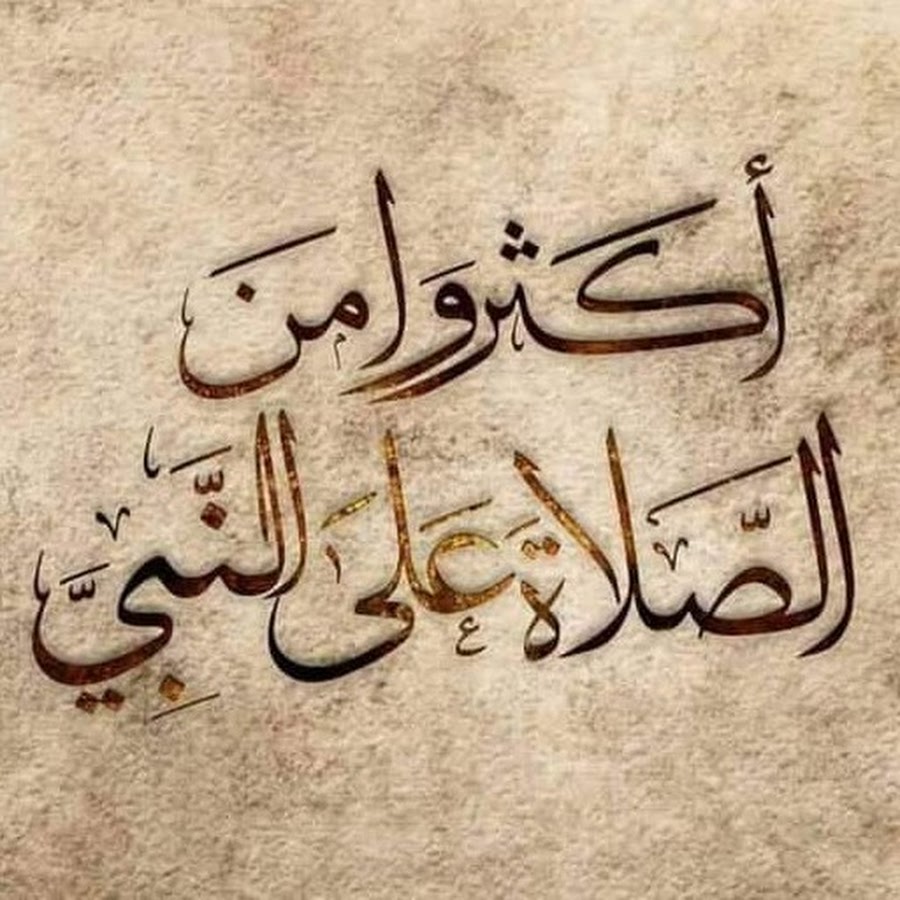 أكثروا من
الصّلاة على النّبيّ